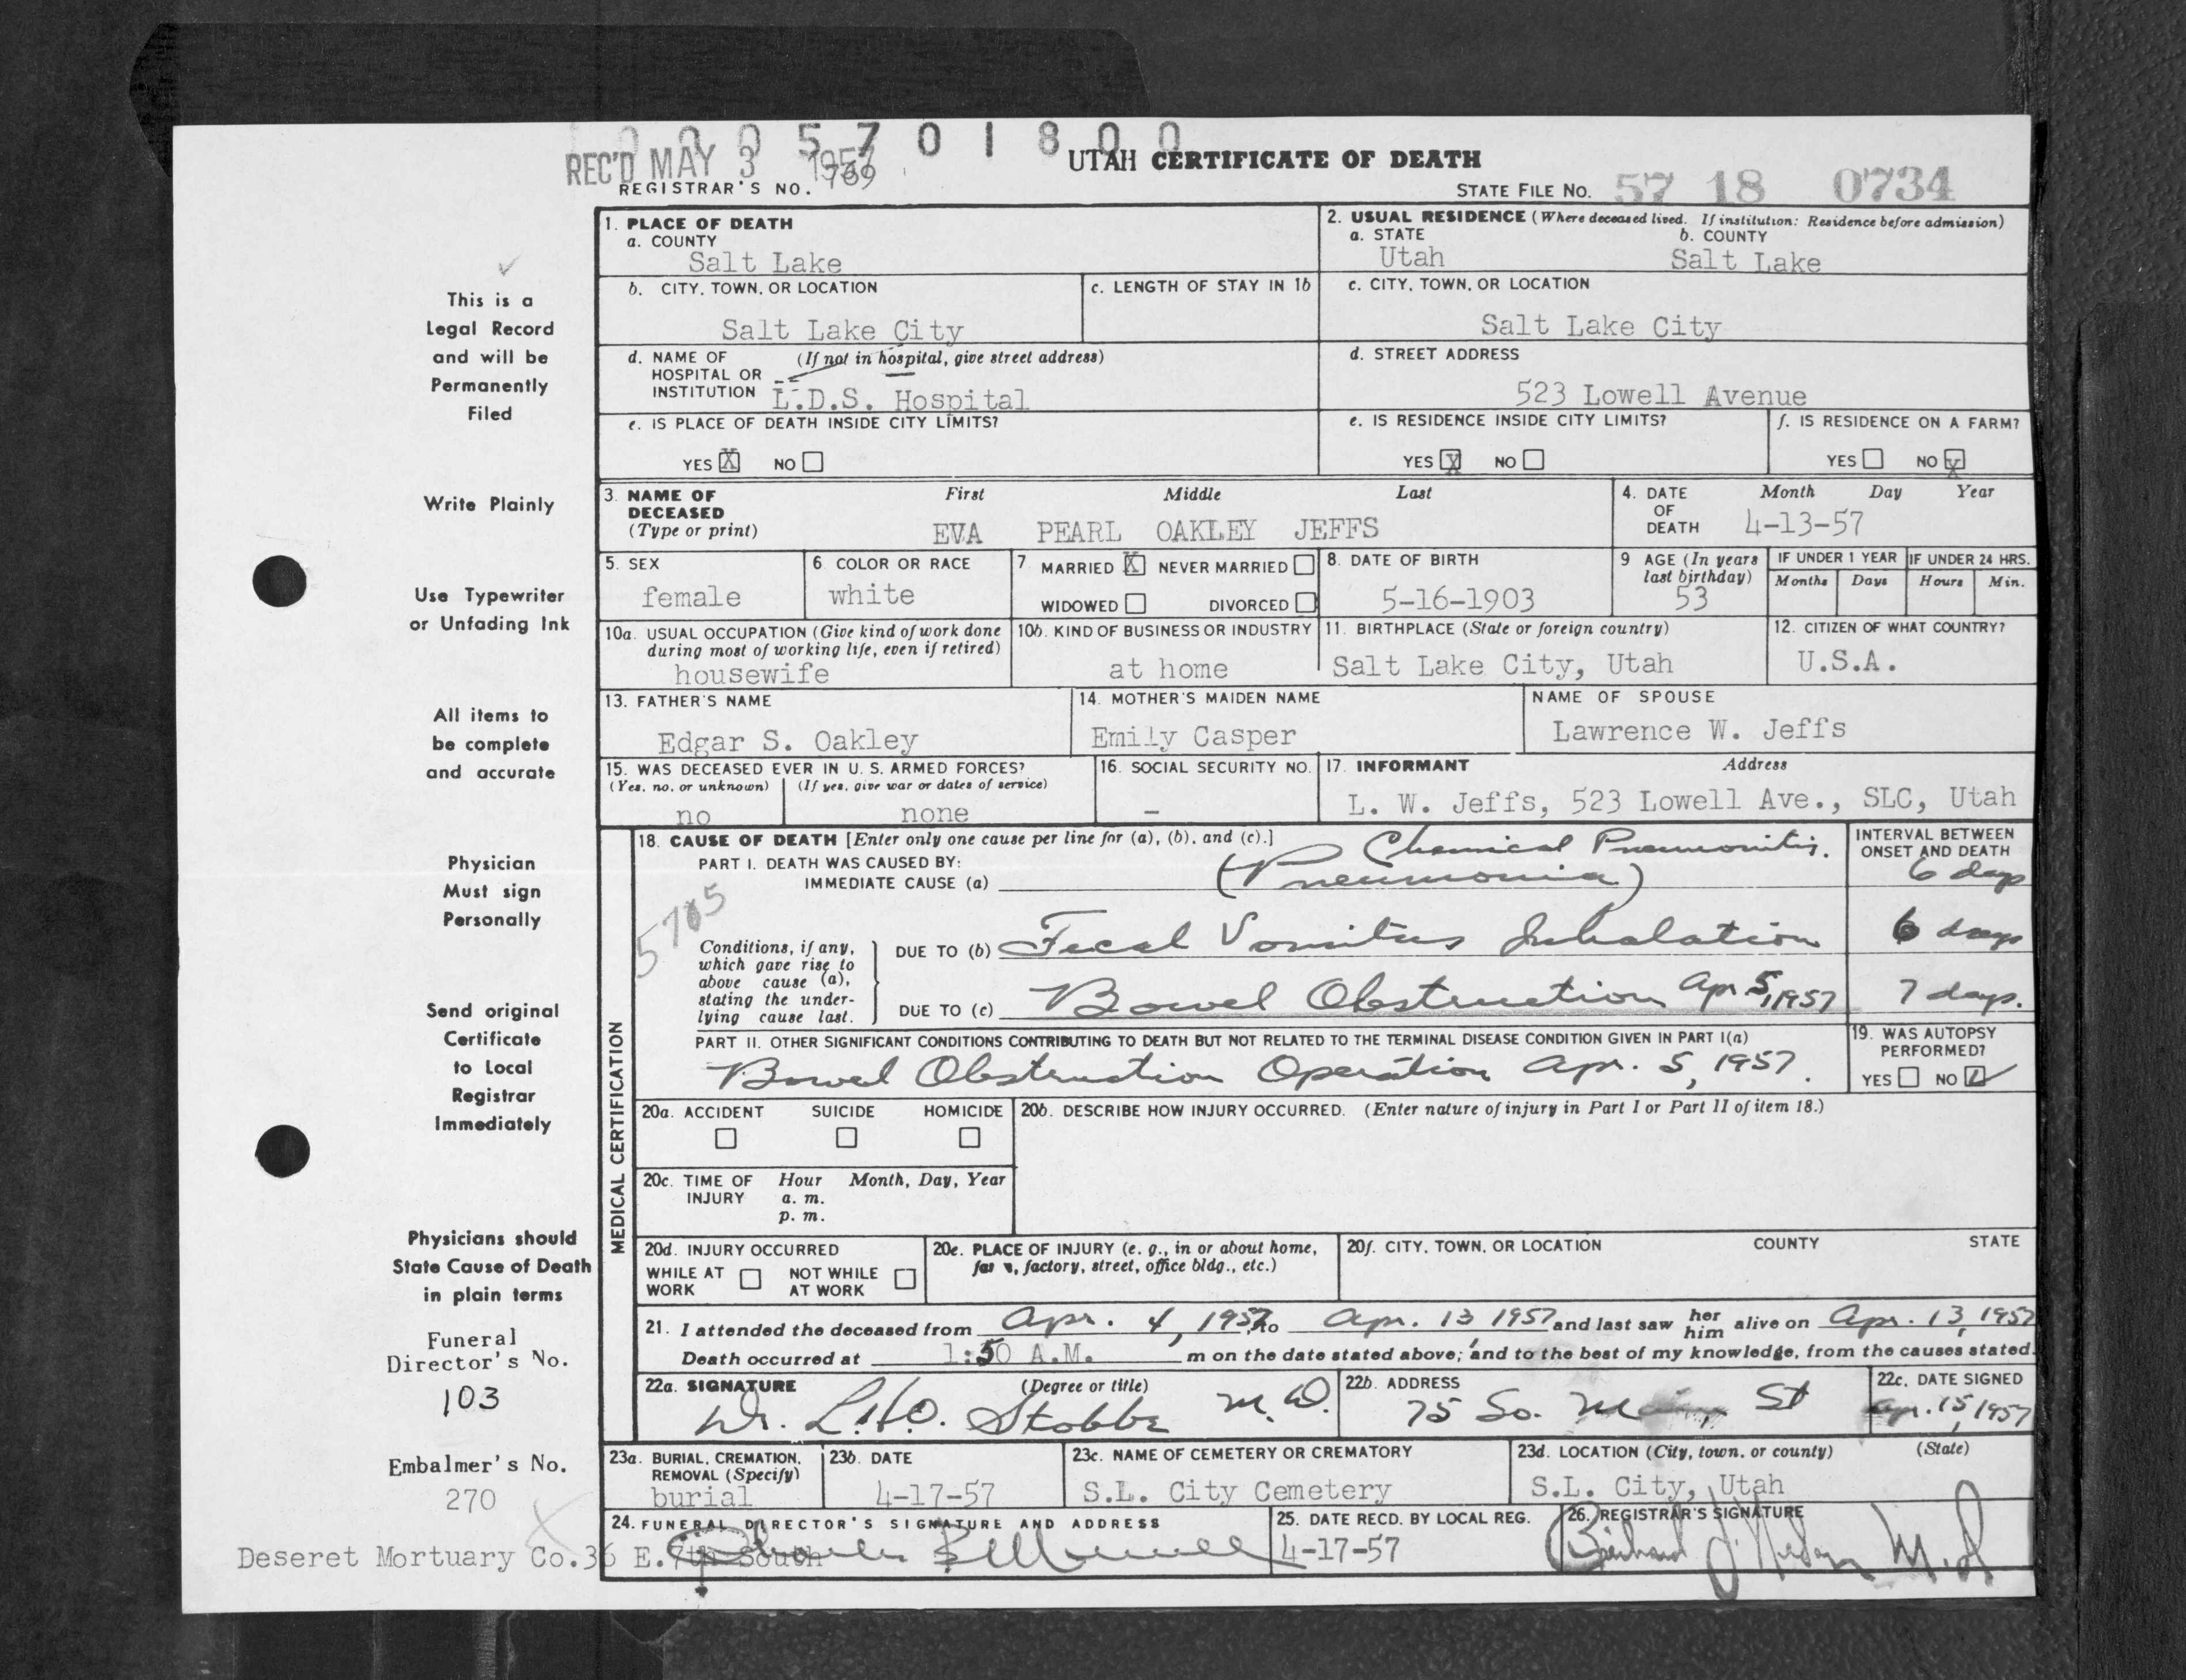 0 0 0 5 7 0 1 8 0 0
REC'D MAY 3 1957
UTAH CERTIFICATE OF DEATH
REGISTRAR'S NO. 769
STATE FILE NO. 57 18 0734
This is a
Legal Record
and will be
Permanently
Filed
Write Plainly
Use Typewriter
or Unfading Ink
All items to
be complete
and accurate
Physician
Must sign
Personally
Send original
Certificate
to Local
Registrar
Immediately
Physicians should
State Cause of Death
in plain terms
Funeral
Director's No.
103
Embalmer's No.
270
1. PLACE OF DEATH
a. COUNTY
Salt Lake
2. USUAL RESIDENCE (Where deceased lived. If institution: Residence before admission)
a. STATE b. COUNTY
Utah Salt Lake
b. CITY, TOWN, OR LOCATION
Salt Lake City
c. LENGTH OF STAY IN 1b
c. CITY, TOWN, OR LOCATION
Salt Lake City
d. NAME OF (If not in hospital, give street address)
HOSPITAL OR
INSTITUTION L.D.S. Hospital
d. STREET ADDRESS
523 Lowell Avenue
e. IS PLACE OF DEATH INSIDE CITY LIMITS?
YES X NO
e. IS RESIDENCE INSIDE CITY LIMITS?
YES X NO
f. IS RESIDENCE ON A FARM?
YES NO X
3. NAME OF First Middle Last
DECEASED
(Type or print) EVA PEARL OAKLEY JEFFS
4. DATE Month Day Year
OF
DEATH 4-13-57
5. SEX
female
6 COLOR OR RACE
white
7 MARRIED X NEVER MARRIED
WIDOWED DIVORCED
8. DATE OF BIRTH
5-16-1903
9 AGE (In years
last birthday)
53
IF UNDER 1 YEAR IF UNDER 24 HRS.
Months Days Hours Min.
10a. USUAL OCCUPATION (Give kind of work done
during most of working life, even if retired)
housewife
10b. KIND OF BUSINESS OR INDUSTRY
at home
11. BIRTHPLACE (State or foreign country)
Salt Lake City, Utah
12. CITIZEN OF WHAT COUNTRY?
U.S.A.
13. FATHER'S NAME
Edgar S. Oakley
14. MOTHER'S MAIDEN NAME
Emily Casper
NAME OF SPOUSE
Lawrence W. Jeffs
15. WAS DECEASED EVER IN U. S. ARMED FORCES?
(Yes, no, or unknown) (If yes, give war or dates of service)
no none
16. SOCIAL SECURITY NO.
-
17. INFORMANT Address
L. W. Jeffs, 523 Lowell Ave., SLC, Utah
MEDICAL CERTIFICATION
18. CAUSE OF DEATH [Enter only one cause per line for (a), (b), and (c).]
PART I. DEATH WAS CAUSED BY:
Chemical Pneumonitis.
IMMEDIATE CAUSE (a) (Pneumonia)
INTERVAL BETWEEN
ONSET AND DEATH
6 days
5705
Conditions, if any,
which gave rise to
above cause (a),
stating the under-
lying cause last.
DUE TO (b) Fecal Vomitus Inhalation 6 days
DUE TO (c) Bowel Obstruction Apr 5, 1957 7 days.
PART II. OTHER SIGNIFICANT CONDITIONS CONTRIBUTING TO DEATH BUT NOT RELATED TO THE TERMINAL DISEASE CONDITION GIVEN IN PART I(a)
Bowel Obstruction Operation Apr. 5, 1957.
19. WAS AUTOPSY
PERFORMED?
YES NO
20a. ACCIDENT SUICIDE HOMICIDE
20b. DESCRIBE HOW INJURY OCCURRED. (Enter nature of injury in Part I or Part II of item 18.)
20c. TIME OF Hour Month, Day, Year
INJURY a. m.
p. m.
20d. INJURY OCCURRED
WHILE AT NOT WHILE
WORK AT WORK
20e. PLACE OF INJURY (e. g., in or about home,
farm, factory, street, office bldg., etc.)
20f. CITY, TOWN, OR LOCATION COUNTY STATE
21. I attended the deceased from Apr. 4, 1957, to Apr. 13 1957 and last saw her him alive on Apr. 13, 1957
Death occurred at 1:50 A.M. m on the date stated above; and to the best of my knowledge, from the causes stated.
22a. SIGNATURE (Degree or title)
Dr. L.H.O. Stobbe M.D.
22b. ADDRESS
75 So. Main St
22c. DATE SIGNED
Apr. 15, 1957
23a. BURIAL, CREMATION,
REMOVAL (Specify)
burial
23b. DATE
4-17-57
23c. NAME OF CEMETERY OR CREMATORY
S.L. City Cemetery
23d. LOCATION (City, town, or county) (State)
S.L. City, Utah
24. FUNERAL DIRECTOR'S SIGNATURE AND ADDRESS
Deseret Mortuary Co. 36 E. 7th South
25. DATE RECD. BY LOCAL REG.
4-17-57
26. REGISTRAR'S SIGNATURE